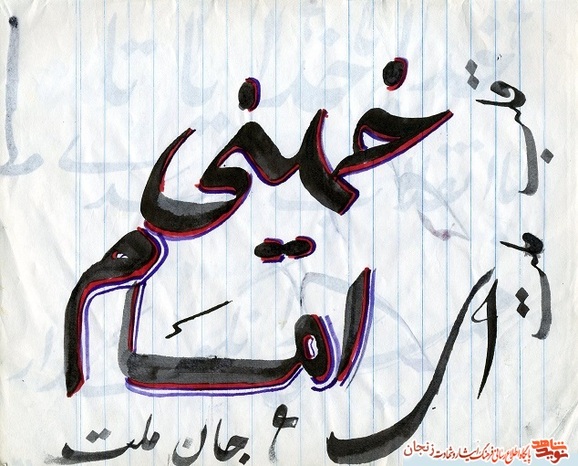 خمینی
امام
ای
قلب ملت
و جان ملت
نوید شاهد
پایگاه اطلاع رسانی فرهنگ ایثار و شهادت زنجان